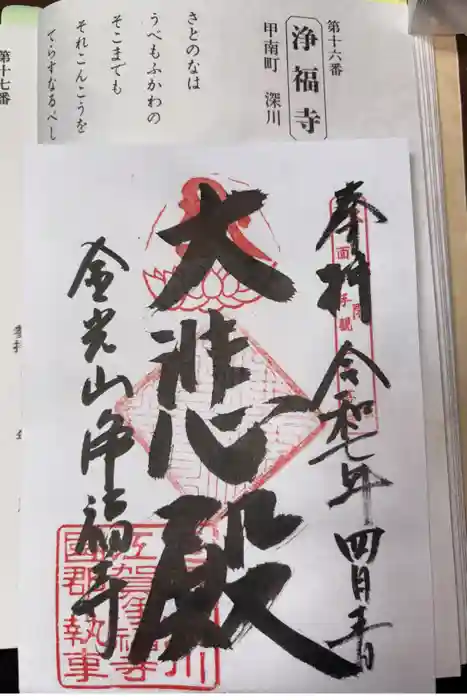 第十六番
浄福寺
甲南町 深川
さとのなは
うべもふかわの
そこまでも
それこんこうを
てらすなるべし
第十七番
奉拝 令和七年四月
大悲殿
金光山浄福寺
國郡執事